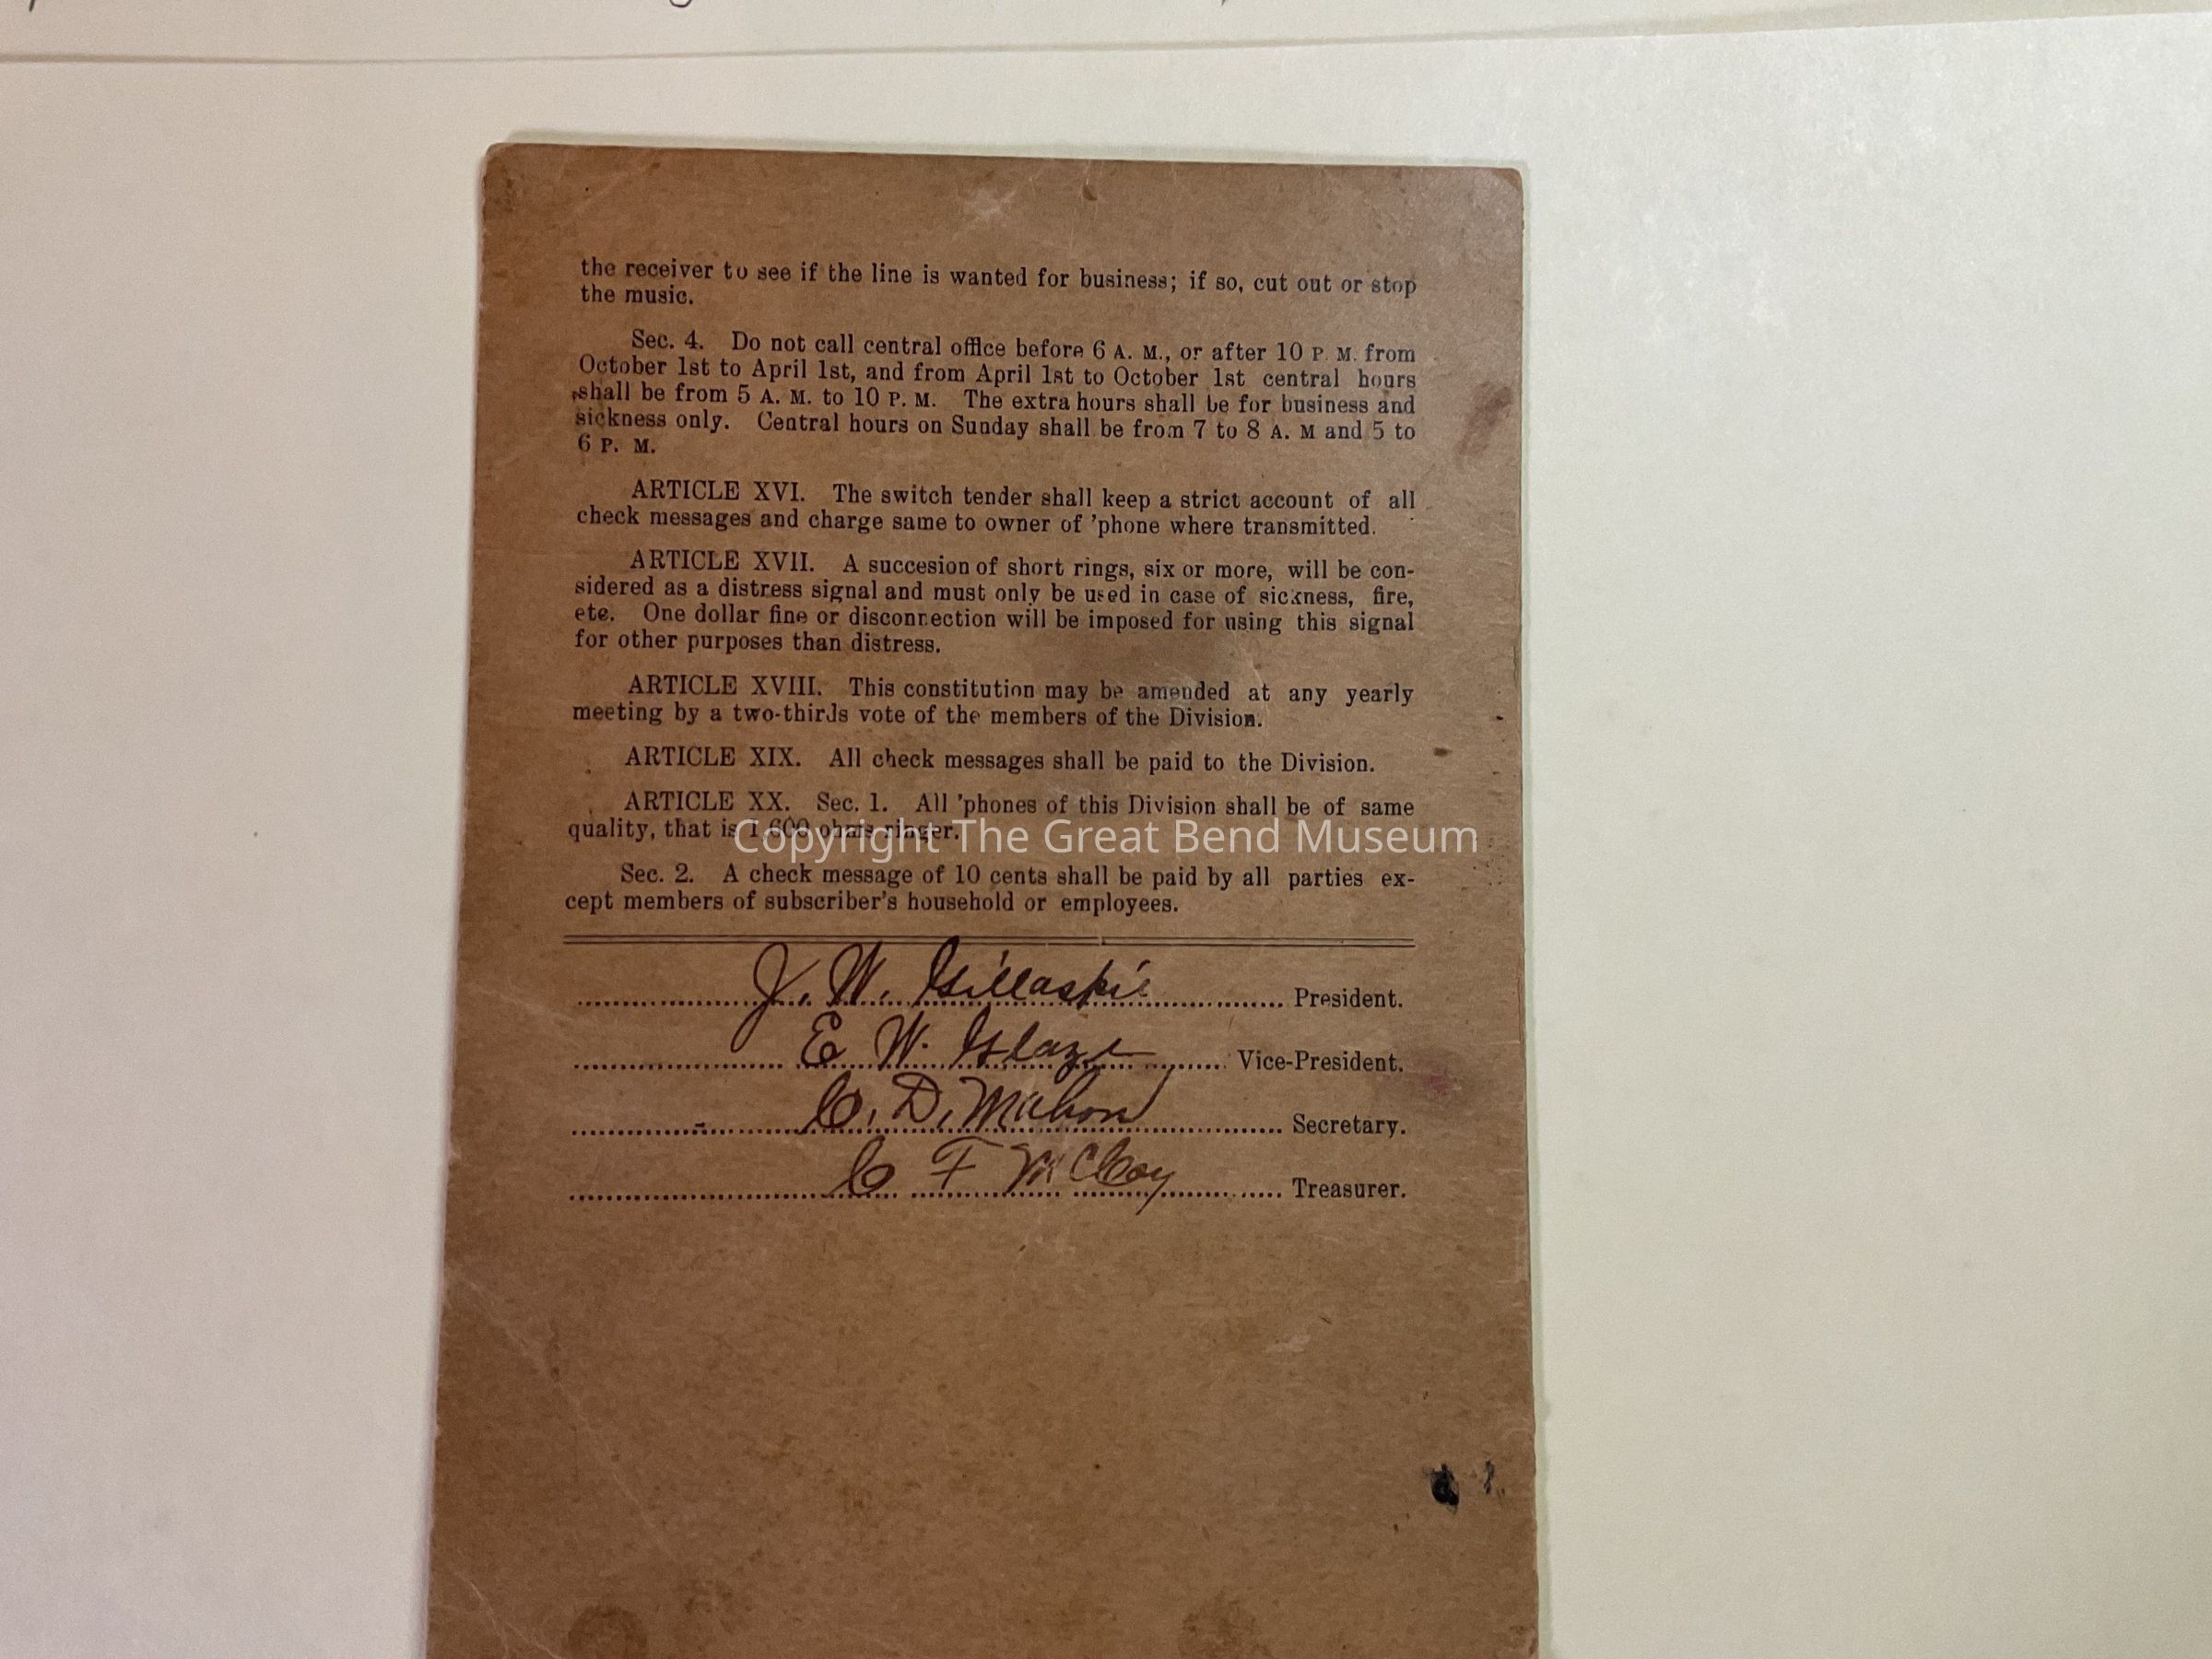 the receiver to see if the line is wanted for business; if so, cut out or stop
the music.
Sec. 4. Do not call central office before 6 A. M., or after 10 P. M. from
October 1st to April 1st, and from April 1st to October 1st central hours
shall be from 5 A. M. to 10 P. M. The extra hours shall be for business and
sickness only. Central hours on Sunday shall be from 7 to 8 A. M and 5 to
6 P. M.
ARTICLE XVI. The switch tender shall keep a strict account of all
check messages and charge same to owner of 'phone where transmitted.
ARTICLE XVII. A succesion of short rings, six or more, will be con-
sidered as a distress signal and must only be used in case of sickness, fire,
etc. One dollar fine or disconnection will be imposed for using this signal
for other purposes than distress.
ARTICLE XVIII. This constitution may be amended at any yearly
meeting by a two-thirds vote of the members of the Division.
ARTICLE XIX. All check messages shall be paid to the Division.
ARTICLE XX. Sec. 1. All 'phones of this Division shall be of same
quality, that is 1,600 ohms ringer.
Copyright The Great Bend Museum
Sec. 2. A check message of 10 cents shall be paid by all parties ex-
cept members of subscriber's household or employees.
J. W. Gillaspie President.
E. W. Glaze Vice-President.
C. D. Mahon Secretary.
C F McCoy Treasurer.